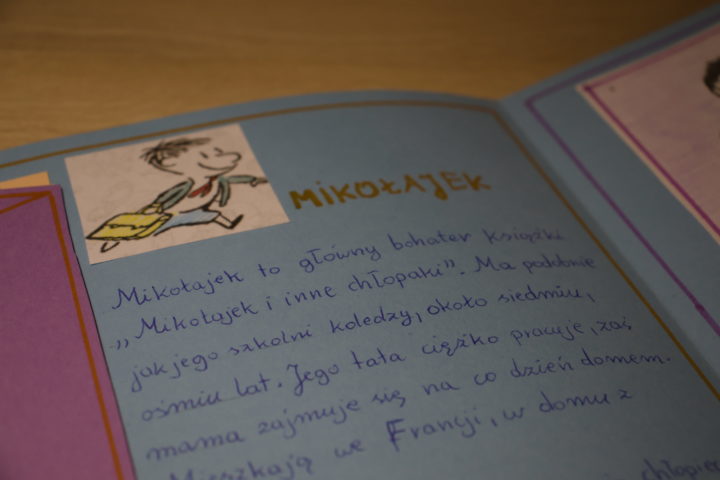 MIKOŁAJEK
Mikołajek to główny bohater książki
„Mikołajek i inne chłopaki”. Ma podobnie
jak jego szkolni koledzy, około siedmiu,
ośmiu lat. Jego tata ciężko pracuje, zaś
mama zajmuje się na co dzień domem.
Mieszkają we Francji, w domu z